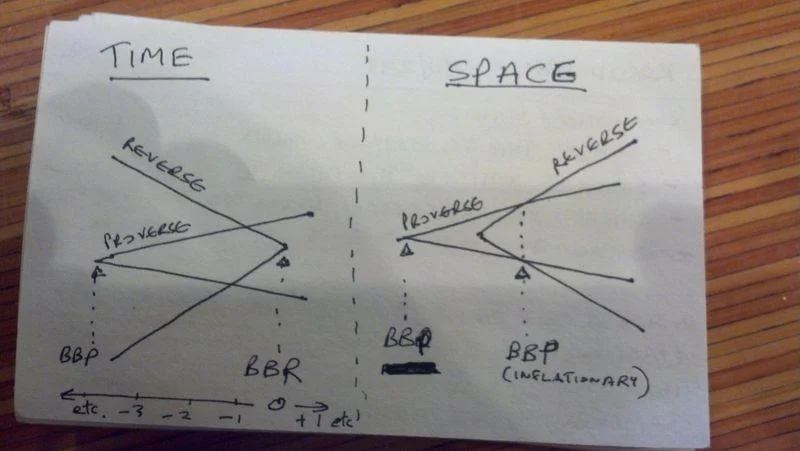 TIME
REVERSE
PROVERSE
BBP
BBR
etc. -3 -2 -1 0 +1 etc
SPACE
REVERSE
PROVERSE
BBP
BBP
(INFLATIONARY)